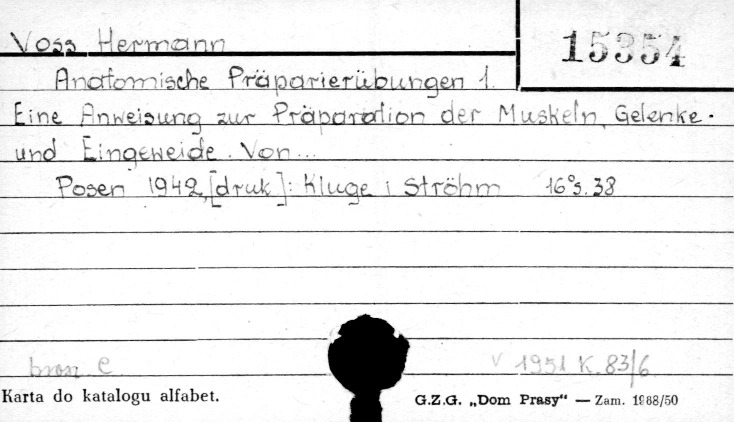 Voss Hermann
15354
Anatomische Präparierübungen 1.
Eine Anweisung zur Präparation der Muskeln, Gelenke
und Eingeweide. Von...
Posen 1942, [druk]: Kluge i Ströhm 16° s. 38
bron. C
V 1951 K. 83/6
Karta do katalogu alfabet.
G.Z.G. „Dom Prasy“ — Zam. 1868/50